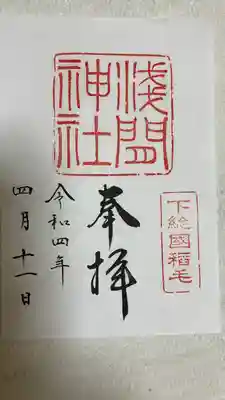 浅間神社
下総國稻毛
奉拝
令和四年
四月十一日